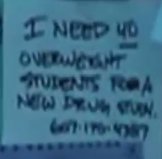 I NEED 40
OVERWEIGHT
STUDENTS FOR A
NEW DRUG STUDY.